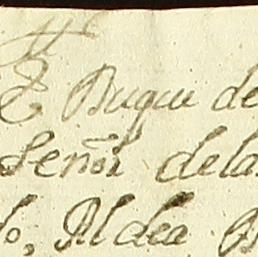 Buque de
Señor dela
lo, Aldea B